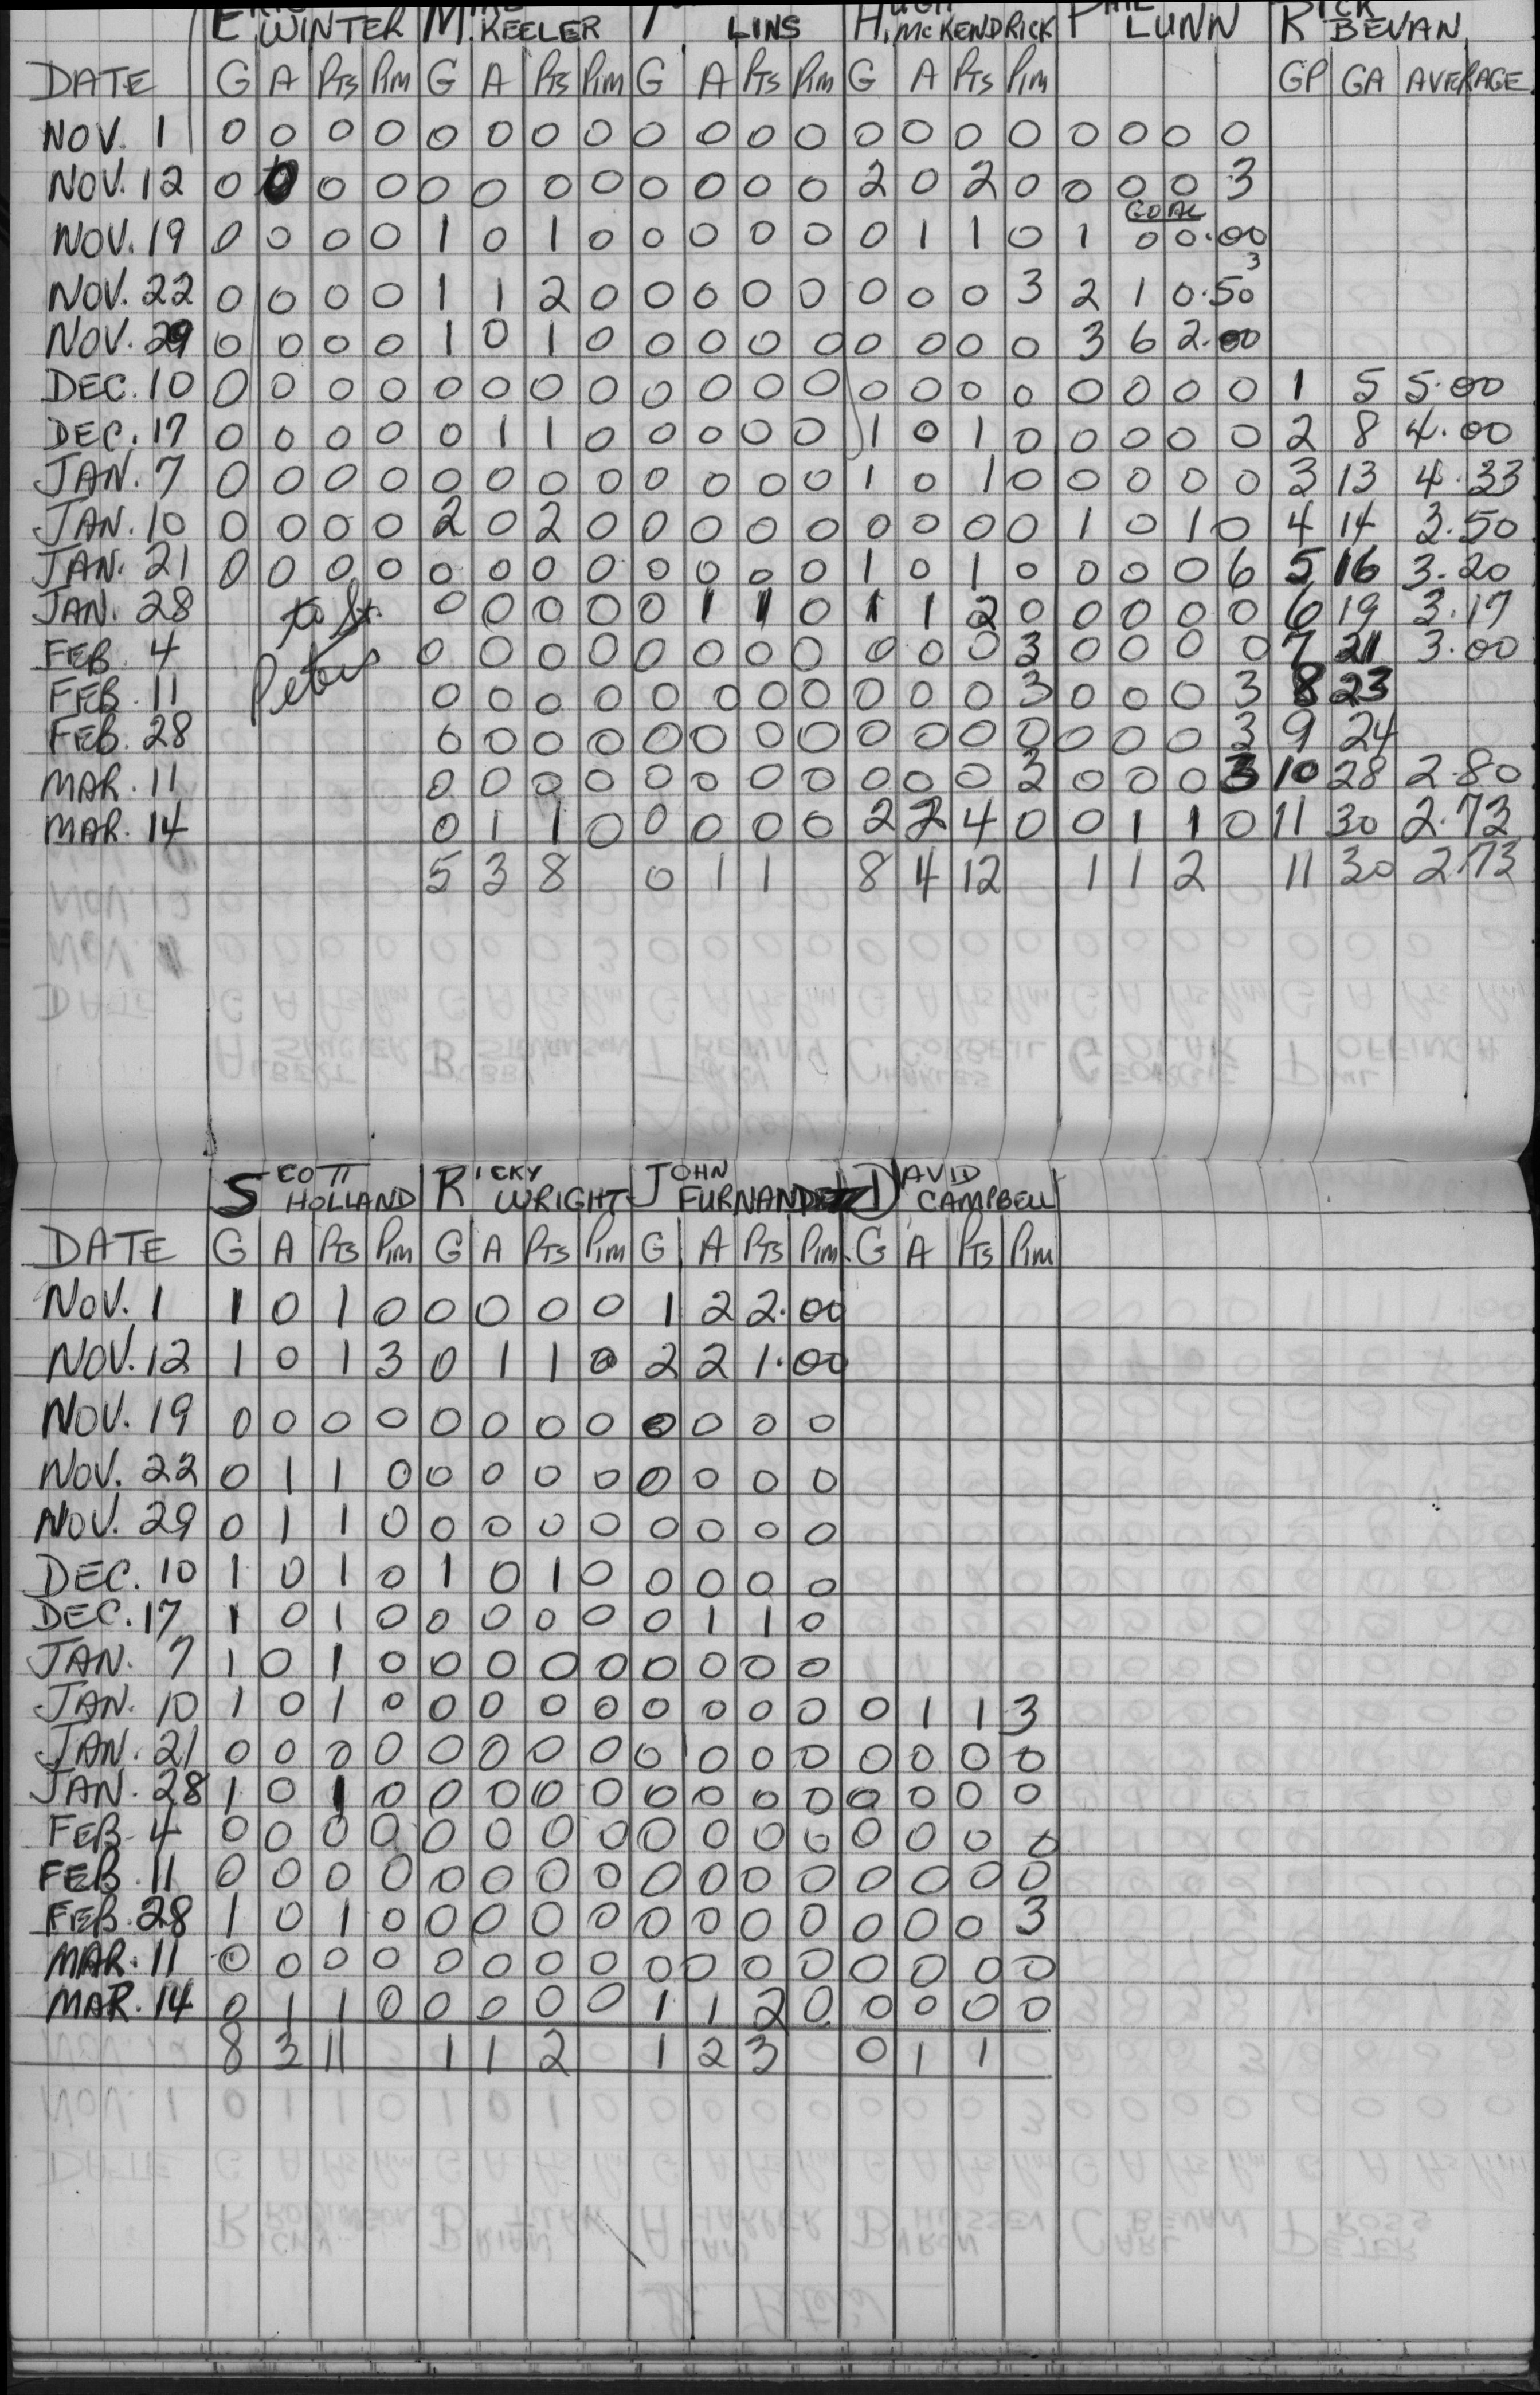 ERIC WINTER MIKE KEELER LINS HUGH MCKENDRICK PHIL LUNN RICK BEVAN
DATE G A PTS PIM G A PTS PIM G A PTS PIM G A PTS PIM GP GA AVERAGE
NOV. 1 0 0 0 0 0 0 0 0 0 0 0 0 0 0 0 0 0 0 0 0
NOV. 12 0 0 0 0 0 0 0 0 0 0 0 0 2 0 2 0 0 0 0 3
GOAL
NOV. 19 0 0 0 0 1 0 1 0 0 0 0 0 0 1 1 0 1 0 0.00
3
NOV. 22 0 0 0 0 1 1 2 0 0 0 0 0 0 0 0 3 2 1 0.50
NOV. 29 0 0 0 0 1 0 1 0 0 0 0 0 0 0 0 0 3 6 2.00
DEC. 10 0 0 0 0 0 0 0 0 0 0 0 0 0 0 0 0 0 0 0 0 1 5 5.00
DEC. 17 0 0 0 0 0 1 1 0 0 0 0 0 1 0 1 0 0 0 0 0 2 8 4.00
JAN. 7 0 0 0 0 0 0 0 0 0 0 0 0 1 0 1 0 0 0 0 0 3 13 4.33
JAN. 10 0 0 0 0 2 0 2 0 0 0 0 0 0 0 0 0 1 0 1 0 4 14 3.50
JAN. 21 0 0 0 0 0 0 0 0 0 0 0 0 1 0 1 0 0 0 0 6 5 16 3.20
JAN. 28 to St. 0 0 0 0 0 1 1 0 1 1 2 0 0 0 0 0 6 19 3.17
FEB. 4 Peters 0 0 0 0 0 0 0 0 0 0 0 3 0 0 0 0 7 21 3.00
FEB. 11 0 0 0 0 0 0 0 0 0 0 0 3 0 0 0 3 8 23
FEB. 28 0 0 0 0 0 0 0 0 0 0 0 0 0 0 0 3 9 24
MAR. 11 0 0 0 0 0 0 0 0 0 0 0 3 0 0 0 3 10 28 2.80
MAR. 14 0 1 1 0 0 0 0 0 2 2 4 0 0 1 1 0 11 30 2.73
5 3 8 0 1 1 8 4 12 1 1 2 11 30 2.73
SCOTT HOLLAND RICKY WRIGHT JOHN FURNANDEZ DAVID CAMPBELL
DATE G A PTS PIM G A PTS PIM G A PTS PIM G A PTS PIM
NOV. 1 1 0 1 0 0 0 0 0 1 2 2.00
NOV. 12 1 0 1 3 0 1 1 0 2 2 1.00
NOV. 19 0 0 0 0 0 0 0 0 0 0 0 0
NOV. 22 0 1 1 0 0 0 0 0 0 0 0 0
NOV. 29 0 1 1 0 0 0 0 0 0 0 0 0
DEC. 10 1 0 1 0 1 0 1 0 0 0 0 0
DEC. 17 1 0 1 0 0 0 0 0 0 1 1 0
JAN. 7 1 0 1 0 0 0 0 0 0 0 0 0
JAN. 10 1 0 1 0 0 0 0 0 0 0 0 0 0 1 1 3
JAN. 21 0 0 0 0 0 0 0 0 0 0 0 0 0 0 0 0
JAN. 28 1 0 1 0 0 0 0 0 0 0 0 0 0 0 0 0
FEB. 4 0 0 0 0 0 0 0 0 0 0 0 0 0 0 0 0
FEB. 11 0 0 0 0 0 0 0 0 0 0 0 0 0 0 0 0
FEB. 28 1 0 1 0 0 0 0 0 0 0 0 0 0 0 0 3
MAR. 11 0 0 0 0 0 0 0 0 0 0 0 0 0 0 0 0
MAR. 14 0 1 1 0 0 0 0 0 1 1 2 0 0 0 0 0
8 3 11 1 1 2 1 2 3 0 1 1